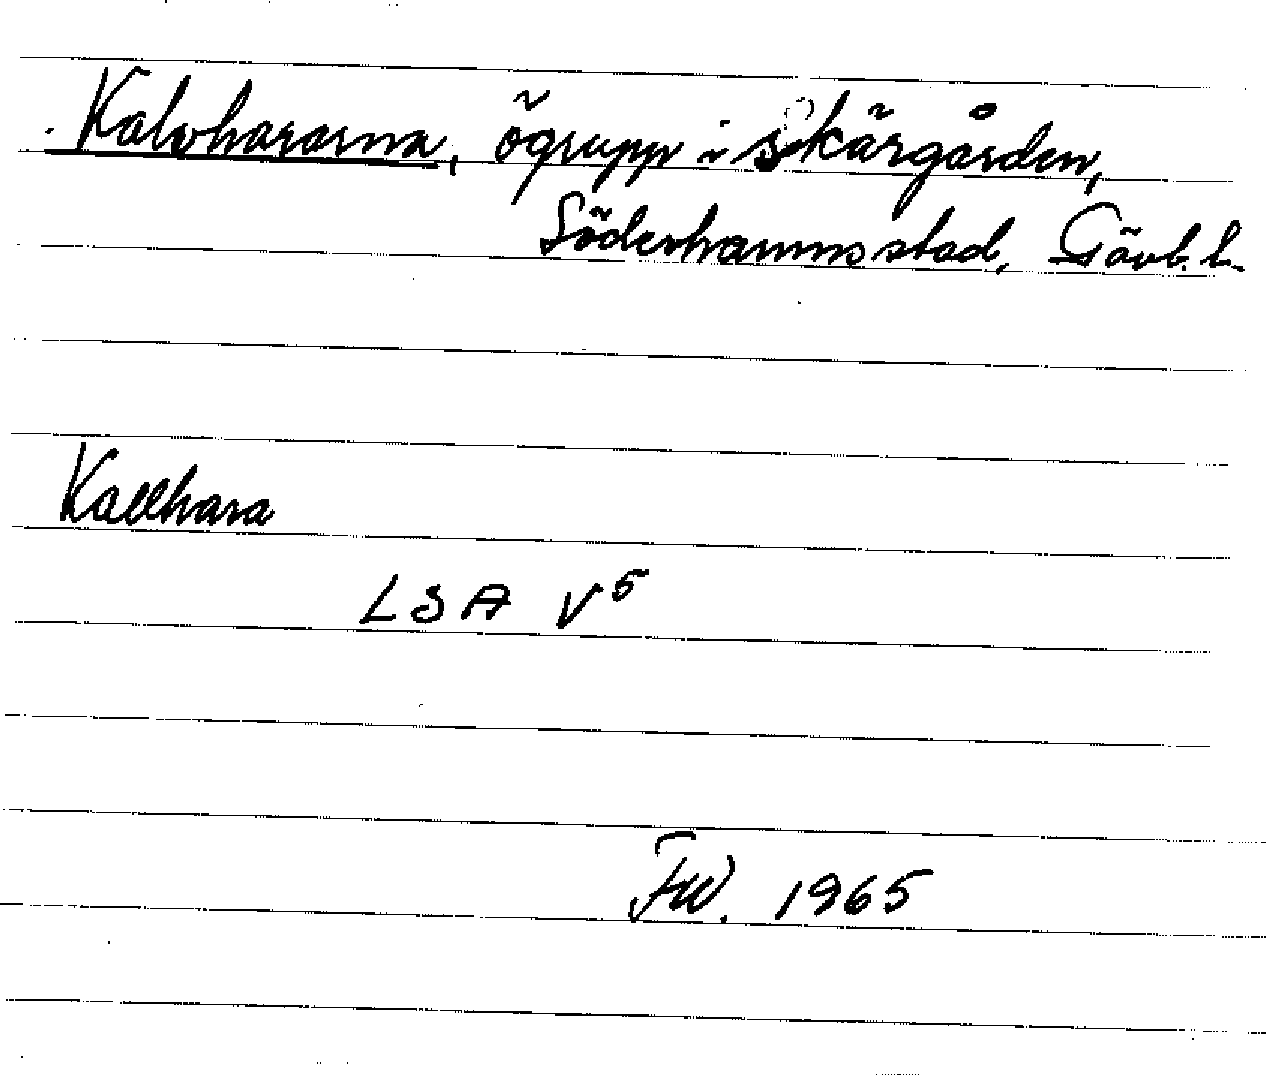 Kalvhararna, ögrupp i skärgården,
Söderhamns stad, Gävl. l.
Kallhara
LSA V⁵
FW. 1965